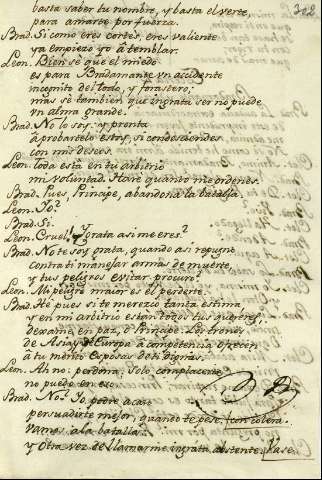 302
basta saber tu nombre, y basta el verte,
para amarte por fuerza.
Brad. Si como eres cortes, eres valiente
ya empiezo yo à temblar.
Leon. Bien sé que el miedo
es para Bradamante un accidente
incognito del todo, y forastero;
mas sé tambien que ingrata ser no puede
un alma grande.
Brad. No lo soy; y pronta
à probartelo estoy, si condesciendes
con mis deseos.
Leon. Toda está en tu arbitrio
mi voluntad. Haré quanto me ordenes.
Brad. Pues, Principe, abandona la batalla.
Leon. Yo?
Brad. Si.
Leon. Cruel! Yngrata asi me eres?
Brad. No te soy grata, quando asi repugno
contra ti manejar armas de muerte,
y tus peligros evitar procuro?
Leon. Mi peligro maior es el perderte.
Brad. Hé pues si te merezco tanta estima,
y en mi arbitrio están todos tus quereres,
dexame en paz, ò Principe. Los tronos
de Asia, y de Europa à competencia ofrecen
à tu merito Esposas de ti dignas.
Leon. Ah no: perdona; Solo complacerte
no puedo en eso.
Brad. No? Yo podré acaso
persuadirte mejor, quando te pese, con colera
vamos à la batalla:
y Otra vez de llamarme ingrata abstente. Vase.